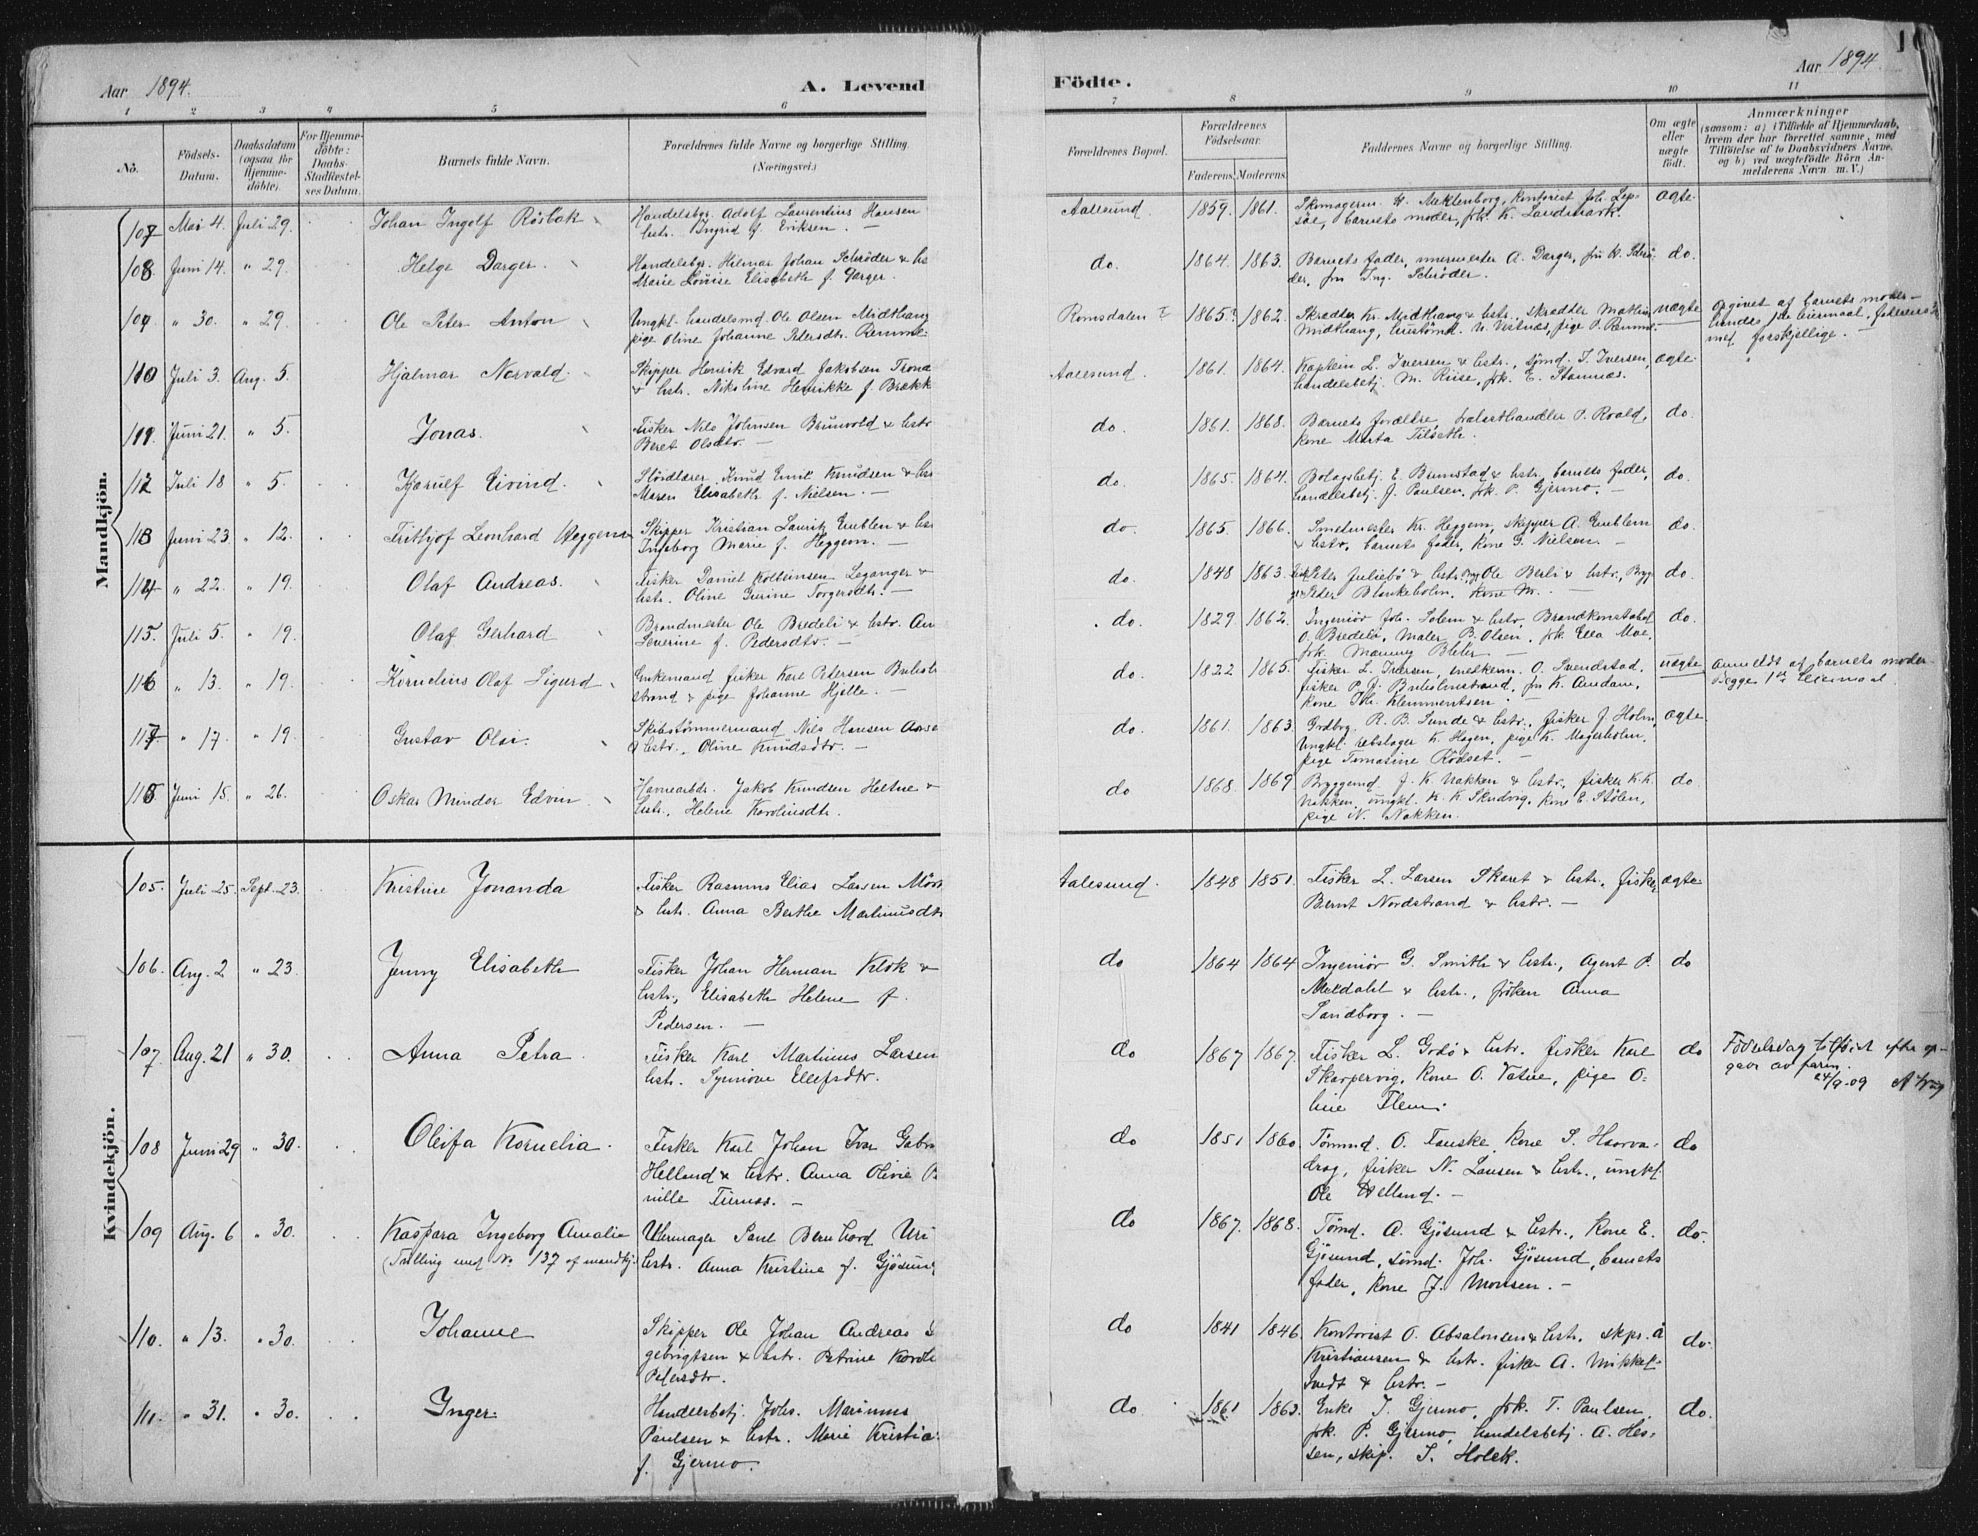 Aar 1894.
A. Levend
Födte.
Aar 1894.
1 2 3 4 5 6 7 8 9 10 11
No.
Födsels-
Datum.
Daabsdatum
(ogsaa for
Hjemme-
döbte).
For Hjemme-
döbte:
Daabs-
Stadfæstel-
ses Datum.
Barnets fulde Navn.
Forældrenes fulde Navne og borgerlige Stilling.
(Næringsvei.)
Forældrenes Bopæl.
Forældrenes
Födselsaar.
Faderens. Moderens.
Faddernes Navne og borgerlige Stilling.
Om ægte
eller
uægte
födt.
Anmærkninger
(saasom: a) i Tilfælde af Hjemmedaab,
hvem der har forrettet samme, med
Tilföielse af to Daabsvidners Navne,
og b) ved uægtefödte Börn An-
melderens Navn m. V.)
Mandkjön.
107 Mai 4. Juli 29. Johan Ingolf Rösbak
Handelsbgr. Adolf Laurentius Hansen
& hstr. Ingrid f. Eriksen. —
Aalesund 1859. 1861.
Skomagerm. H. Meklenborg, Kontorist Joh. Lep-
söe, barnets moder, frk. K. Landmark.
ægte.
108 Juni 14. " 29. Helge Darger.
Handelsbgr. Hilmar Johan Schrøder & hs
Marie Louise Elisabeth f. Darger.
do. 1864. 1863.
Barnets fader, murmester A. Darger, fru K. Schrö-
der, frn Ing. Schrøder.
do.
109 " 30. " 29. Ole Peter Anton
Ungkl. handelsmd. Ole Olsen Midthaug
pige Oline Johanne Petersdtr. Remme.
Romsdalen 1865? 1862.
Skrædder Kr. Midthaug & hstr., skrædder Mathias
Midthaug, hustømd. N. Vestnæs, pige P. Remme.
uægte
Opgivet af barnets moder —
hendes 1ste leiermaal, faderens
med forskjellige.
110 Juli 3. Aug. 5. Hjalmar Norvald.
Skipper Henrik Edvard Jakobsen Trona
& hstr. Nikoline Henrikke f. Brækk
Aalesund. 1861. 1864.
Kaptein L. Iversen & hstr., sömd. I. Iversen,
handelsbetj. M. Riise, frk. E. Stamnæs.
ægte.
111. Juni 21. " 5. Jonas.
Fisker Nils Johnsen Brunvold & hstr
Beret Olsdtr. —
do. 1861. 1868.
Barnets forældre, trælasthandler P. Roald,
kone Marta Tilseth.
do.
112 Juli 18 " 5. Kjærulf Eivind.
Knud Emil Knudsen & hs
Maren Elisabeth f. Nielsen. —
do. 1865. 1864.
Bolagsbetj. E. Brunstad & hstr. barnets fader,
handelsbetj. J. Paulsen, frk. P. Gjermo. —
do.
113 Juni 23 " 12. Frithjof Leonhard Heggem
Skipper Kristian Lauritz Emblem & hs
Ingeborg Marie f. Heggem. —
do. 1865. 1866.
Smedmester Kr. Heggem, skipper A. Emblem
& hstr., barnets fader, kone G. Nielsen. —
do.
114 " 22. " 19. Olaf Andreas.
Fisker Daniel Kolbeinsen Leganger &
hstr. Oline Gurine Torgersdtr. —
do. 1848 1863.
Peter Juliebö & hstr. Ole Berli & hstr., Bryg
Peder Blankeholm, kone M. —
do.
115. Juli 5. " 19. Olaf Gerhard
Brandmester Ole Bredeli & hstr. An
Severine f. Pedersdtr. —
do. 1829 1862.
Ingeniør Joh. Solem & hstr, Brandkonstabel
O. Bredeli, maler B. Olsen, frk Ella Moe,
frk. —
do.
116 " 13. " 19. Kornelius Olaf Sigurd
Enkemand fisker Karl Petersen Buholm
strand & pige Johanne Hjelle. —
do. 1822 1865.
Fisker L. Iversen, O. Svendstad,
fisker P. J. Buholmstrand, frn K. Amdam,
kone Joh. Klemmentsen.
uægte
Anmeldt af barnets moder
Begge 1ste leiermaal
117 " 17. " 19. Gustav Olai.
Skibstömmermand Nils Hansen Aarse
& hstr., Oline Knudsdtr. —
do. 1861. 1863.
Grdbrg. R. B. Sunde & hstr., fisker J. Holm,
ungkl. rebslager K. Hagen, pige K. Magerholm,
pige Tomasine Rödset. —
ægte.
118 Juni 15. " 26. Oskar Mindor Edvin
Havnearbdr. Jakob Knudsen Heltne &
hstr., Helene Karolinsdtr.
do 1868. 1869
Byggemd J. K. Nakken & hstr, fisker K. K.
Nakken, ungkl. K. K. Skudvig, kone E. Stölen,
pige N. Nakken.
do
Kvindekjön.
105. Juli 25. Sept. 23. Kristine Jonanda
Fisker Rasmus Elias Larsen Mörk
& hstr. Anna Berthe Martinusdtr
Aalesund. 1848 1851.
Fisker L. Larsen Skaret & hstr., fisker
Bernt Nordstrand & hstr. —
ægte
106. Aug. 2 " 23. Jenny Elisabeth
Fisker Johan Herman Klok &
hstr., Elisabeth Helene f.
Pedersen. —
do 1864 1864
Ingeniör G. Smith & hstr., Agent P.
Meldahl & hstr., fröken Anna
Sandborg. —
do
107. Aug. 21 " 30. Anna Petra.
Fisker Karl Martinus Larsen
hstr. Synnove Ellefsdtr.
do 1867 1867.
Fisker L. Godö & hstr. fisker Karl
Skarpervig, kone O. Vatne, pige O-
line Flem.
do
Födselsdag tilføiet efter op-
gave av faren.
24/9-09
108 Juni 29 " 30. Oleifa Kornelia.
Fisker Karl Johan Ivar Gabr
Helland & hstr. Anna Olivie P
nille Furnæs. —
do 1851 1860
Tömmd. O. Fauske, kone S. Haarva-
drag, fisker N. Larsen & hstr., ungkl.
Ole Helland. —
do
109 Aug. 6 " 30. Kaspara Ingeborg Amalie
(Tvilling med No. 137 af mandkj.
Uhrmager Paul Bernhard Uri
hstr. Anna Kristine f. Gjösund
do 1867. 1868.
Tömd. A. Gjösund & hstr., kone E.
Gjösund, sömd. Joh. Gjösund, barnets
fader, kone J. Monsen. —
do.
110. " 13. " 30. Johanne
Skipper Ole Johan Andreas
gebrigtsen & hstr. Petrine Karol
Petersdtr.
do 1841 1846.
Kontorist O. Absalonsen & hstr. skpr. A
Kristiansen & hstr. fisker A. Mikkel-
tvedt & hstr. —
do.
111. " 31. " 30. Inger.
Handelsbetj. Johs. Marinus
Paulsen & hstr. Marie Kristia
f. Gjermo.
do. 1861 1863.
Enke J. Gjermo, frk. T. Paulsen
frk. P. Gjermo, handelsbetj. A. Hes-
sen, skip. I. Holck.
do.